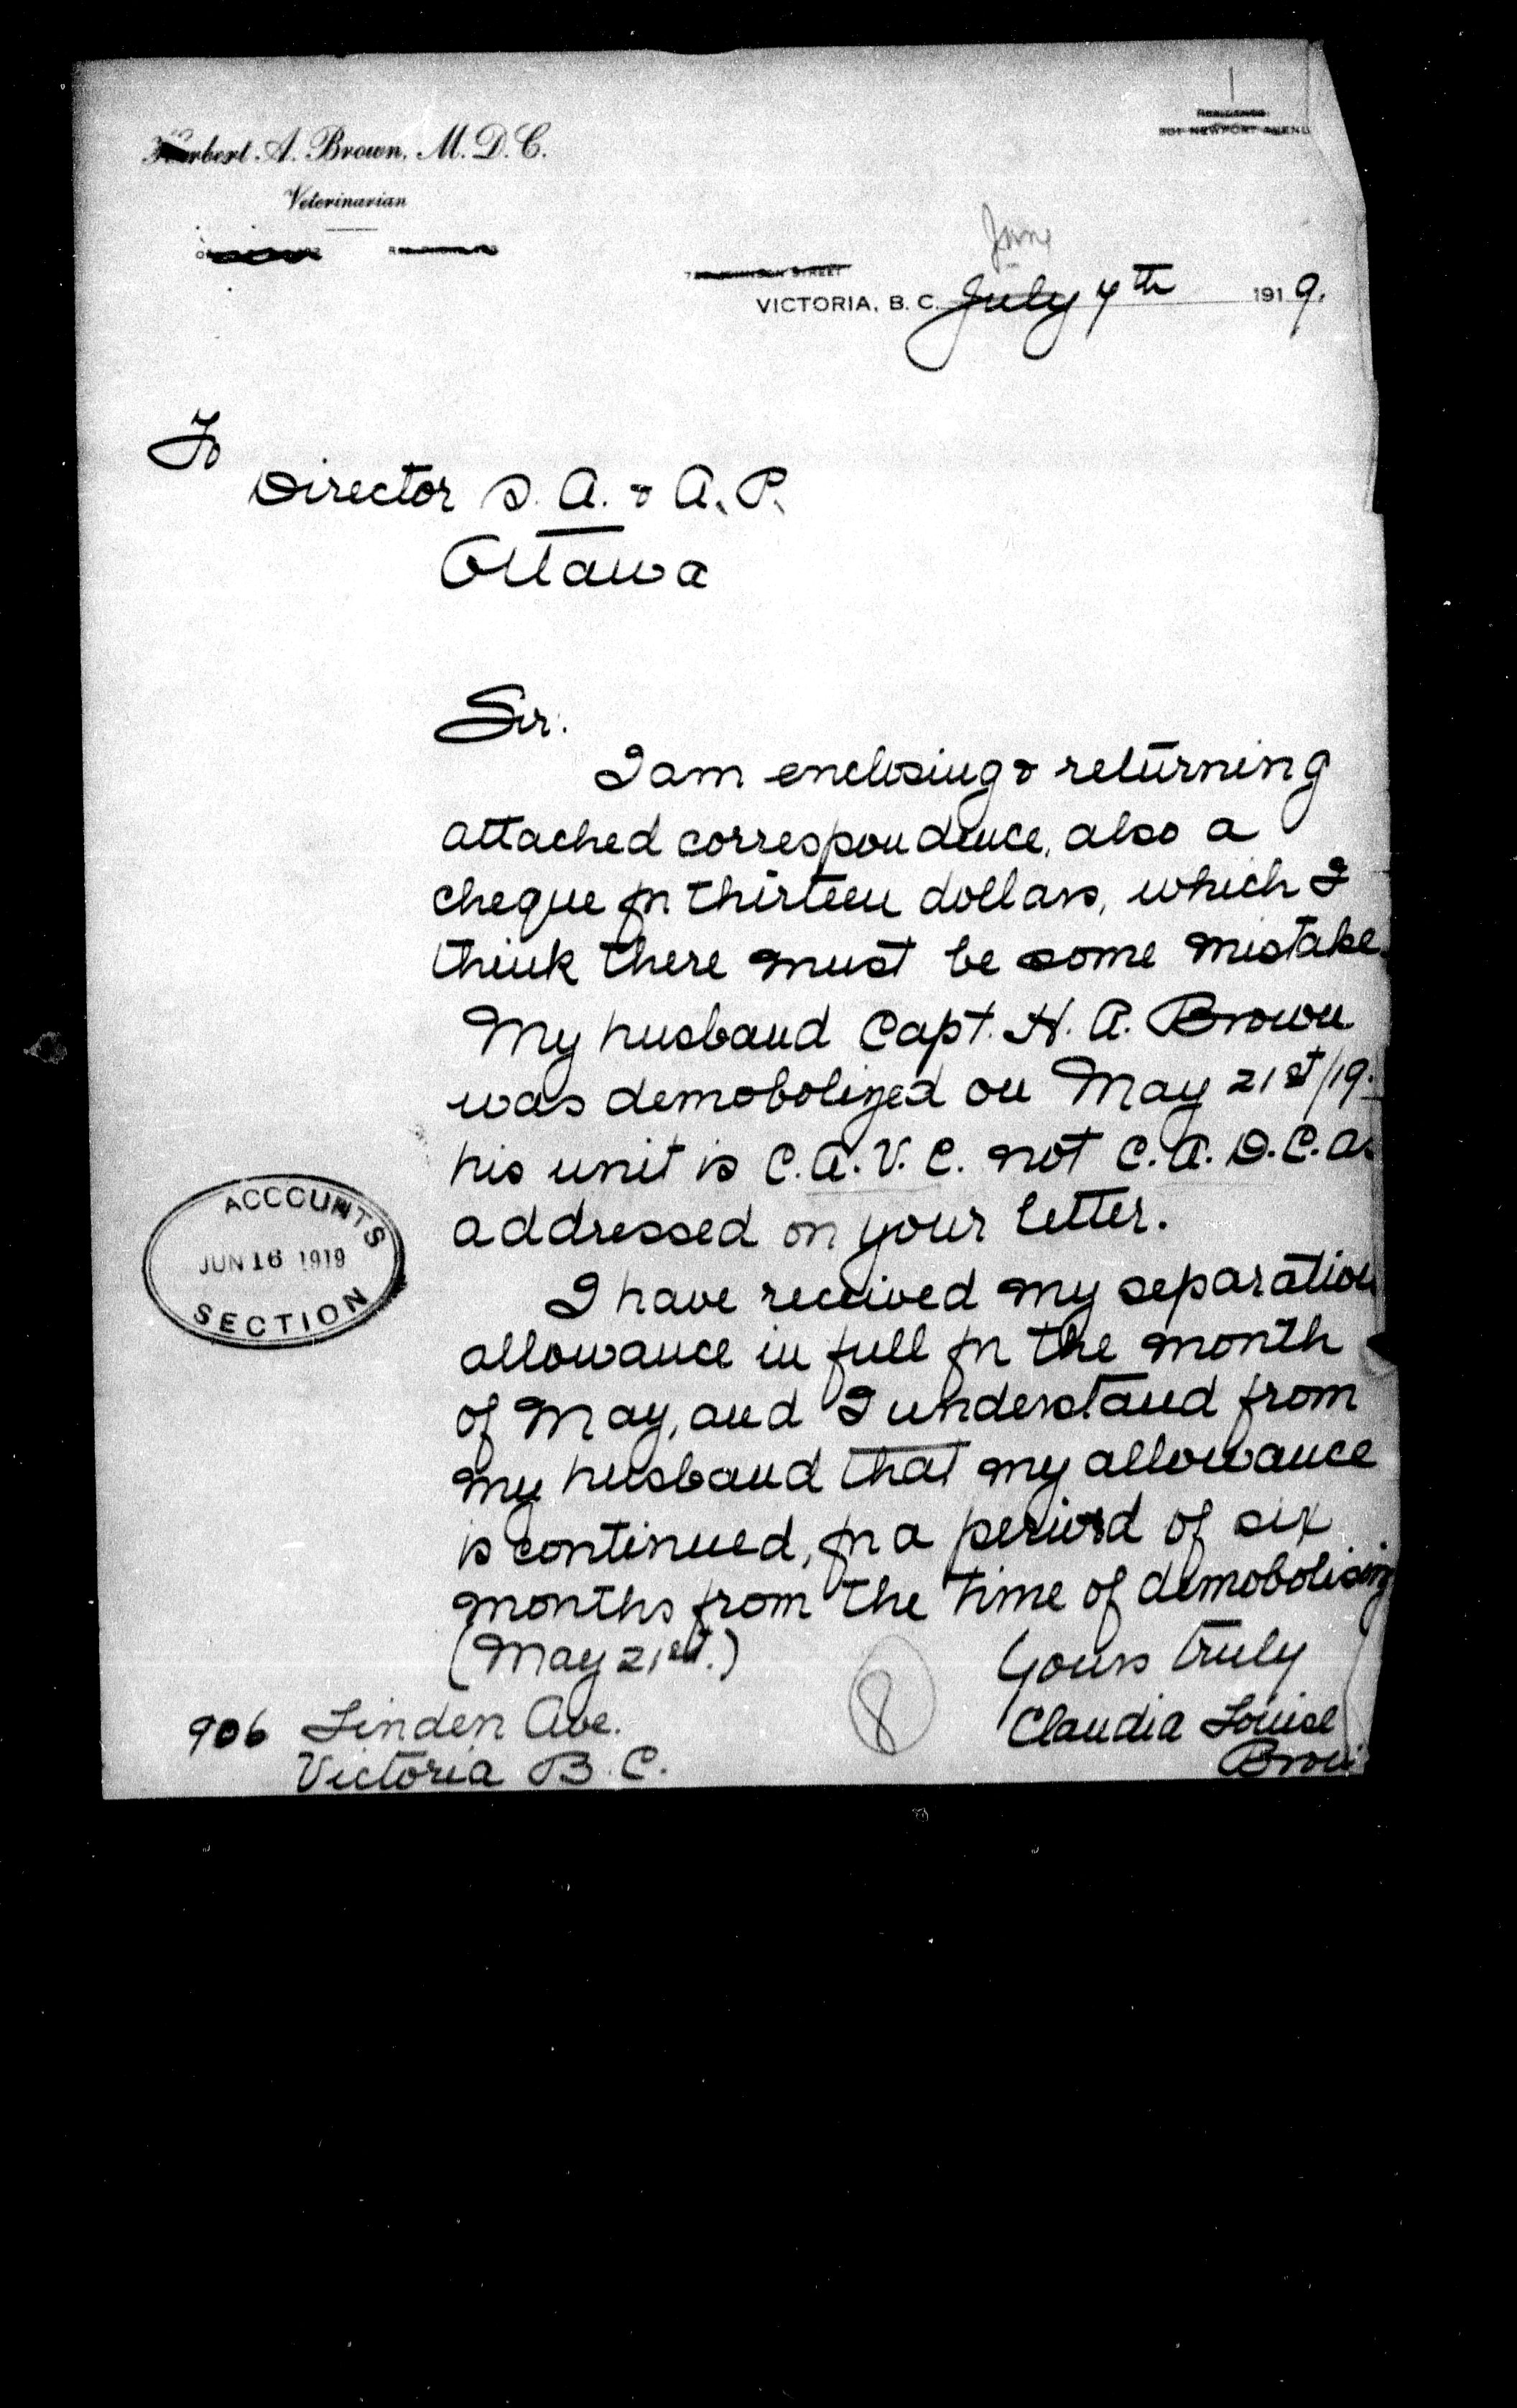 RESIDENCE
Herbert A. Brown, M. D. C.
Veterinarian
JOHNSON STREET
June
VICTORIA, B. C. July 4th 1919.
To
Director S. A. & A. P.
Ottawa
Sir.
I am enclosing & returning
attached correspondence, also a
cheque for thirteen dollars, which I
think there must be some mistake.
My husband Capt. H. A. Brown
was demobolized on May 21st/19.
his unit is C.A.V.C. not C.A.D.C. as
addressed on your letter.
I have received my separation
allowance in full for the month
of May, and I understand from
my husband that my allowance
is continued, for a period of six
months from the time of demobolising
(May 21st.)
Yours truly
8
906 Linden Ave. Claudia Louise
Victoria B. C. Brown
ACCOUNTS
JUN 16 1919
SECTION